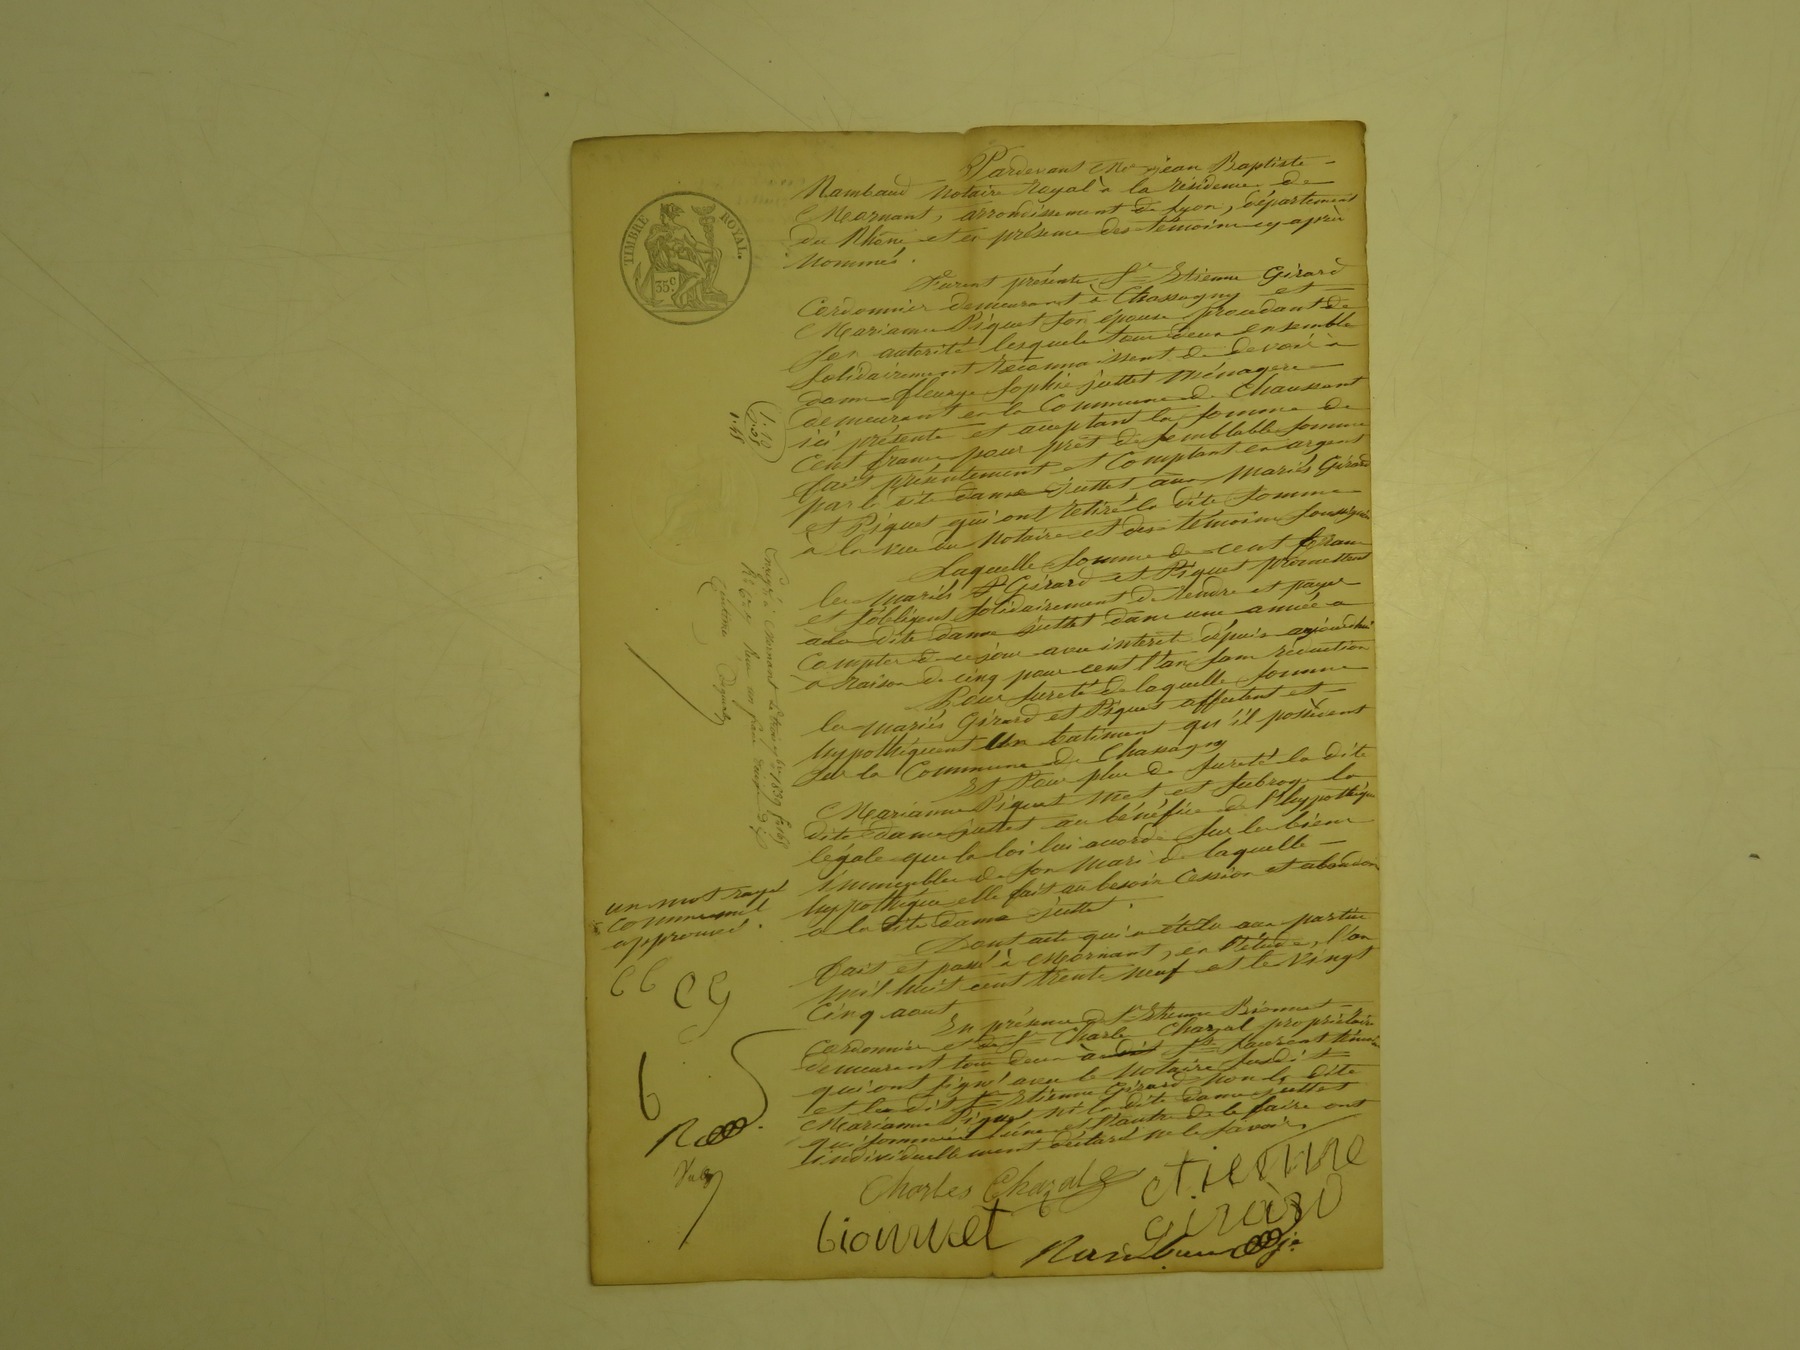 TIMBRE ROYAL
35 c.
Pardevant Me jean Baptiste
Rambaud Notaire Royal à la résidence de
Mornant, arrondissement de Lyon, département
du Rhône et en présence des témoins cy après
Nommés.
Furent présents Sr Etienne Girard
Cordonnier demeurant à Chassagny et
Marianne Piquet son épouse procédant de
son autorité lesquels tous deux ensemble
solidairement reconnaissent de devoir à
dame fleurye Sophie juttet Ménagere
demeurant en la Commune de Chaussant
ici présente et aceptant la somme de
Cent francs pour prêt de semblable somme
fait présentement et Comptant en argent
par la dite dame juttet aux Mariés Girard
et Piquet qui ont retiré la dite somme
à la vue du Notaire et des témoins soussignés
Laquelle somme de cent francs
les mariés Girard et Piquet promettent
et s'obligent solidairement de rendre et payer
a la dite dame juttet dans une année a
Compter de ce jour avec intérêt depuis aujourd'hui
à raison de cinq pour cent l'an sans réduction
Pour sureté de laquelle somme
les mariés Girard et Piquet affectent et
hypothéquent Un batiment qu'il possèdent
sur la Commune de Chassagny
Et Pour plus de sureté la dite
Marianne Piquet met et subroge la
dite dame juttet au bénéfice de l'hypothéque
légale que la loi lui accorde sur les biens
immeubles de son mari de laquelle
hypothéque elle fait au besoin Cession et abandon
a la dite dame juttet.
Dont acte qui a été lu aux parties
fait et passé à Mornant, en l'étude, l'an
mil huit cent trente neuf et le vingt
Cinq aout
En présence de Sr Etienne Bionnet
Cordonnier et de Sr Charle Chazal propriétaire
demeurant tous deux à St Laurent
qui ont signé avec le Notaire susdit
et le dit Sr Etienne Girard non la dite
Marianne Piquet ni la dite dame juttet
qui sommées l'une et l'autre de le faire ont
individuellement déclaré ne le savoir,
Charles Chazal
Etienne
Girard
bionnet
Rambaud
1.10
1.45
Enregé à Mornant
Reçu un franc
un mot rayé
comme nul
approuvé.
CC CG
b
R